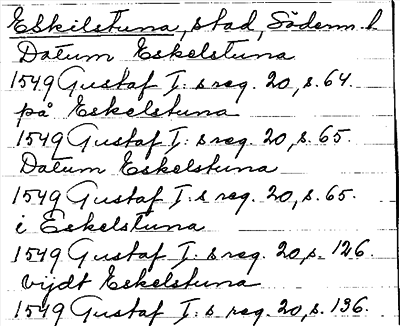 Eskilstuna, stad, Söderm. l.
Datum Eskelstuna
1549 Gustaf I:s reg. 20, s. 64.
på Eskelstuna
1549 Gustaf I:s reg. 20, s. 65.
Datum Eskelstuna
1549 Gustaf I:s reg. 20, s. 65.
i Eskelstuna
1549 Gustaf I:s reg. 20, s. 126.
vijdt Eskelstuna
1549 Gustaf I:s reg. 20, s. 136.